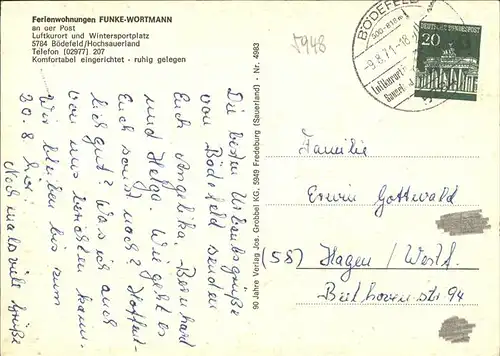 Ferienwohnungen FUNKE-WORTMANN
an der Post
Luftkurort und Wintersportplatz
5784 Bödefeld/Hochsauerland
Telefon (02977) 207
Komfortabel eingerichtet - ruhig gelegen
5948
BÖDEFELD
500-818m
-9.8.71-18
Luftkurort
DEUTSCHE BUNDESPOST
20
Die besten Urlaubsgrüße
von Bödefeld senden
Euch Angelika, Bernhard
und Helga. Wie geht es
Euch sonst noch? Hoffent-
lich gut? Was ich auch
von uns berichten kann.
Wir bleiben bis zum
20. 8. hier.
Nochmals viele Grüße
90 Jahre Verlag Jos. Grobbel KG, 5949 Fredeburg (Sauerland) - Nr. 4983
Familie
Erwin Gottwald
(58) Hagen / Westf.
Beethovenstr. 94